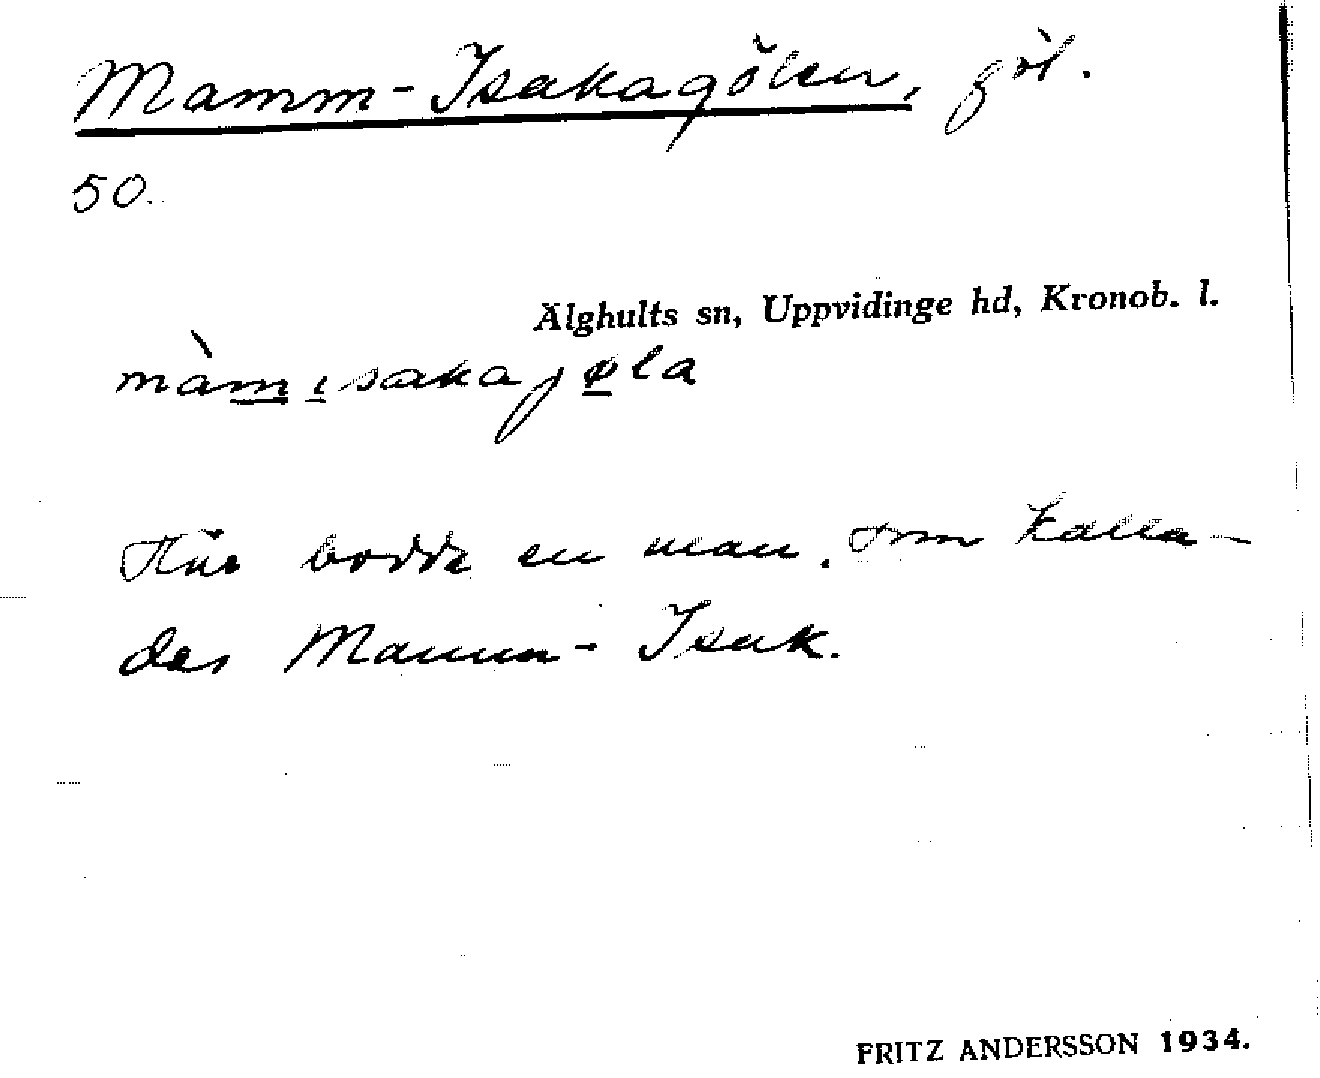 Mamm-Isakagölen, göl.
50.
Älghults sn, Uppvidinge hd, Kronob. l.
màmısakajøla
Här bodde en man, som kalla-
des Mamm-Isak.
FRITZ ANDERSSON 1934.